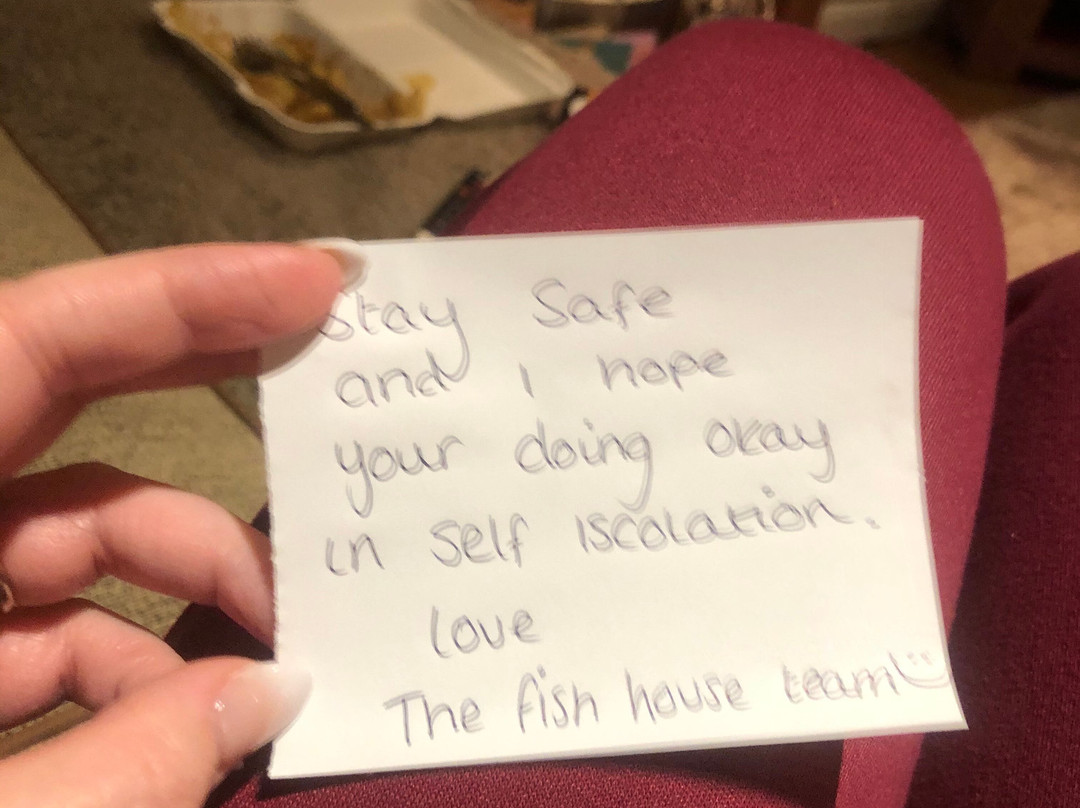 Stay Safe
and I hope
your doing okay
in self iscolation.
love
The fish house team!